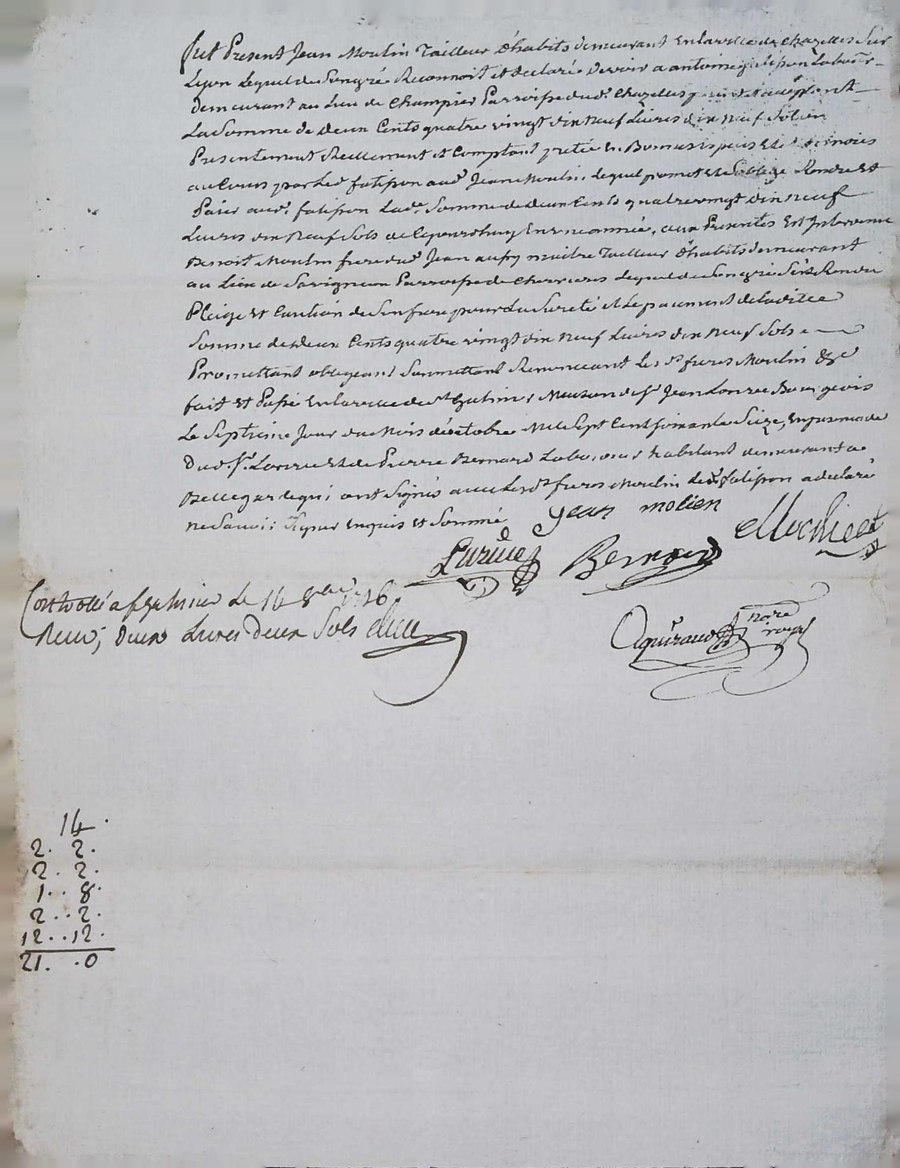 fut Present Jean Moulin Tailleur d'habits demeurant En la ville de Chazelles Sur
Lyon Lequel de Son gré Reconnoit et declaré Devoir a antoine
demeurant au Lieu de Champier Parroisse du dt. Chazelles
La Somme de deux Cents quatre vingt dix neuf Livres dix neuf Sols
Presentement Reellement et Comptant pretée En Bonnes Especes
au Cours par Led. fatisson aud. Jean Moulin Lequel promet et Soblige Rendre et
Paier aud. fatisson Lade. Somme de deux Cents quatre vingt dix neuf
Livres dix neuf Sols aux Presentes Est Intervenu
Benoit Moulin frere dud. Jean aussy maitre Tailleur d'habits demeurant
au Lieu de Savigneu Parroisse de Lequel de Son gré S'est Rendu
Pleige et Caution de Son frere pour La Sureté et Le paiment de Laditte
Somme de deux Cents quatre vingt dix neuf Livres dix neuf Sols
Promettant obligeant Soumettant Renonceant Les ds. freres Moulin &c
fait et Passé En la ville de St. Galmier Maison de Sr. Jean Bourgeois
Le Septieme Jour du Mois d'octobre Mil Sept Cent Soixante Seize, En presence
Du d. Sr. et de Pierre Bernard habitant demeurant a
Bellegarde qui ont Signés avec Les ds. freres Moulin Led. fatisson a declaré
ne Savoir Signer Enquis et Sommé Jean molien
Bernard
Controllé a St Galmier Le 14 8bre
Reçu, Deux Livres Deux Sols
nore
royal
14.
2. 2.
2. 2.
1.. 8.
2.. 2.
12..12.
21. .0